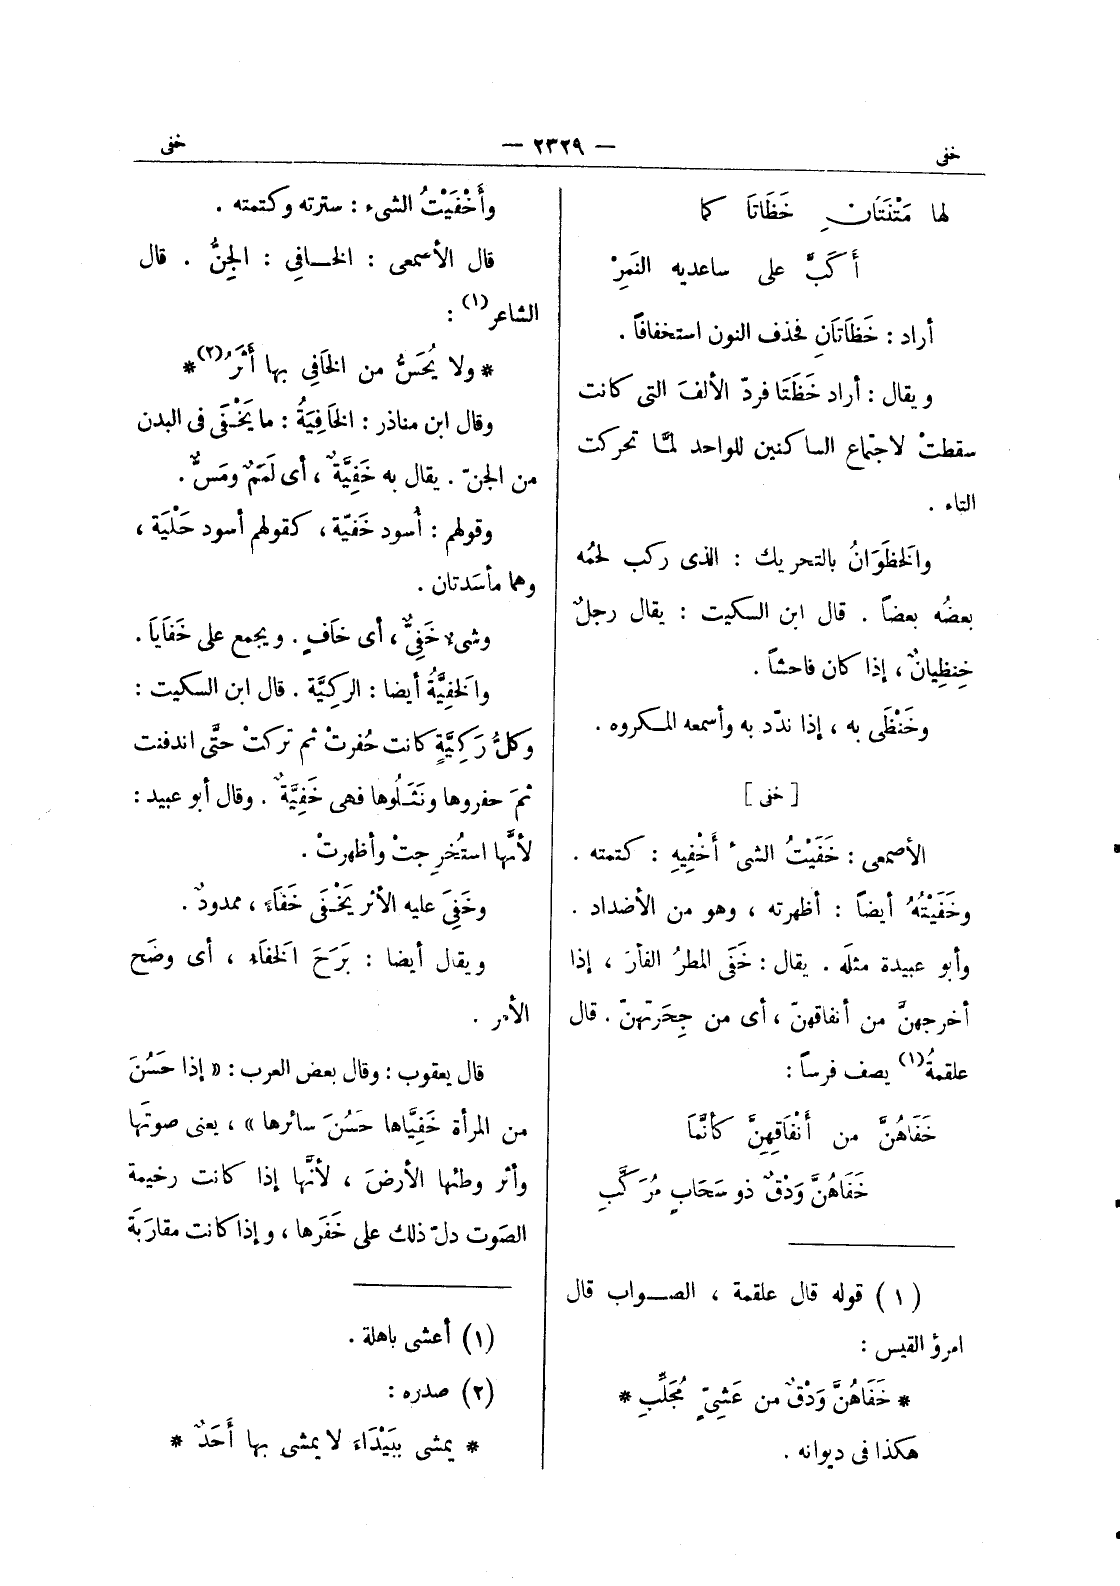 خفى
— ٢٣٢٩ —
خفى
لها مَتْنَتَانِ خَظَاتَا كما
أَكَبَّ على ساعديه النَمِرْ
أراد : خَظَاتَانِ فحذف النون استخفافاً .
ويقال : أراد خَظَتَا فردّ الألفَ التى كانت
سقطتْ لاجتماع الساكنين للواحد لمَّا تحركت
التاء .
والخَظَوَانُ بالتحريك : الذى ركب لحمُه
بعضُه بعضاً . قال ابن السكيت : يقال رجلٌ
خِنظِيانٌ ، إذا كان فاحشاً .
وخَنْظَى به ، إذا ندّد به وأسمعه المكروه .
[ خفى ]
الأصمعى : خَفَيْتُ الشىءَ أَخْفِيهِ : كتمته .
وخَفَيْتُهُ أيضاً : أظهرته ، وهو من الأضداد .
وأبو عبيدة مثلَه . يقال : خَفَى المطرُ الفأرَ ، إذا
أخرجهنَّ من أنفاقهنّ ، أى من جِحَرَتهنّ . قال
علقمةُ (١) يصف فرساً :
خَفَاهُنَّ من أَنْفَاقِهِنَّ كأنَّمَا
خَفَاهُنَّ وَدْقٌ ذو سَحَابٍ مُرَكَّبِ
(١) قوله قال علقمة ، الصواب قال
امرؤ القيس :
* خَفَاهُنَّ وَدْقٌ من عَشِىٍّ مُجَلِّبِ *
هكذا فى ديوانه .
وأَخْفَيْتُ الشىء : سترته وكتمته .
قال الأصمعى : الخافِى : الجِنُّ . قال
الشاعر (١) :
* ولا يُحَسُّ من الخَافِى بها أَثَرُ (٢) *
وقال ابن مناذر : الخَافِيَةُ : ما يَخْفَى فى البدن
من الجنّ . يقال به خَفِيَّةٌ ، أى لَمَمٌ ومَسٌّ .
وقولهم : أُسود خَفيّة ، كقولهم أسود حَلْيَة ،
وهما مأسَدتان .
وشىء خَفِىٌّ ، أى خَافٍ . ويجمع على خَفَايَا .
والخفِيَّةُ أيضا : الركِيَّة . قال ابن السكيت :
وكلُّ رَكِيَّةٍ كانت حُفرتْ ثم تركتْ حتَّى اندفنت
ثمَ حفروها ونَثَلُوها فهى خَفِيَّةٌ . وقال أبو عبيد :
لأنَّها استُخرِجتْ وأظهرتْ .
وخَفِىَ عليه الأثر يَخْفَى خَفَاءً ، ممدودٌ .
ويقال أيضا : بَرَحَ الخفَاء ، أى وضَح
الأمر .
قال يعقوب : وقال بعض العرب : « إذا حَسُنَ
من المرأة خَفِيَّاها حَسُنَ سائرها » ، يعنى صوتَها
وأثر وطئها الأرضَ ، لأنَّها إذا كانت رخيمة
الصَوت دلّ ذلك على خَفَرها ، وإذا كانت مقاربَة
(١) أعشى باهلة .
(٢) صدره :
* يمشى ببَيْدَاءَ لا يمشى بها أَحَدٌ *